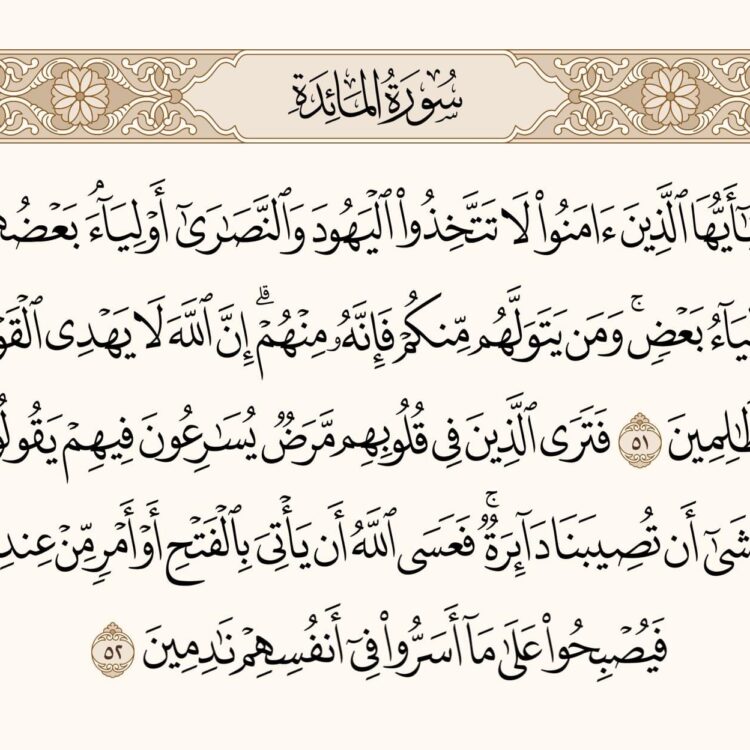 سُورَةُ المَائِدَةِ
يَٰٓأَيُّهَا ٱلَّذِينَ ءَامَنُوا۟ لَا تَتَّخِذُوا۟ ٱلۡيَهُودَ وَٱلنَّصَٰرَىٰٓ أَوۡلِيَآءَۘ بَعۡضُهُ
لِيَآءُ بَعۡضٖۚ وَمَن يَتَوَلَّهُم مِّنكُمۡ فَإِنَّهُۥ مِنۡهُمۡۗ إِنَّ ٱللَّهَ لَا يَهۡدِي ٱلۡقَوۡ
ظَّٰلِمِينَ ٥١ فَتَرَى ٱلَّذِينَ فِي قُلُوبِهِم مَّرَضٞ يُسَٰرِعُونَ فِيهِمۡ يَقُولُو
شَىٰٓ أَن تُصِيبَنَا دَآئِرَةٞۚ فَعَسَى ٱللَّهُ أَن يَأۡتِيَ بِٱلۡفَتۡحِ أَوۡ أَمۡرٖ مِّنۡ عِندِ
فَيُصۡبِحُوا۟ عَلَىٰ مَآ أَسَرُّوا۟ فِيٓ أَنفُسِهِمۡ نَٰدِمِينَ ٥٢